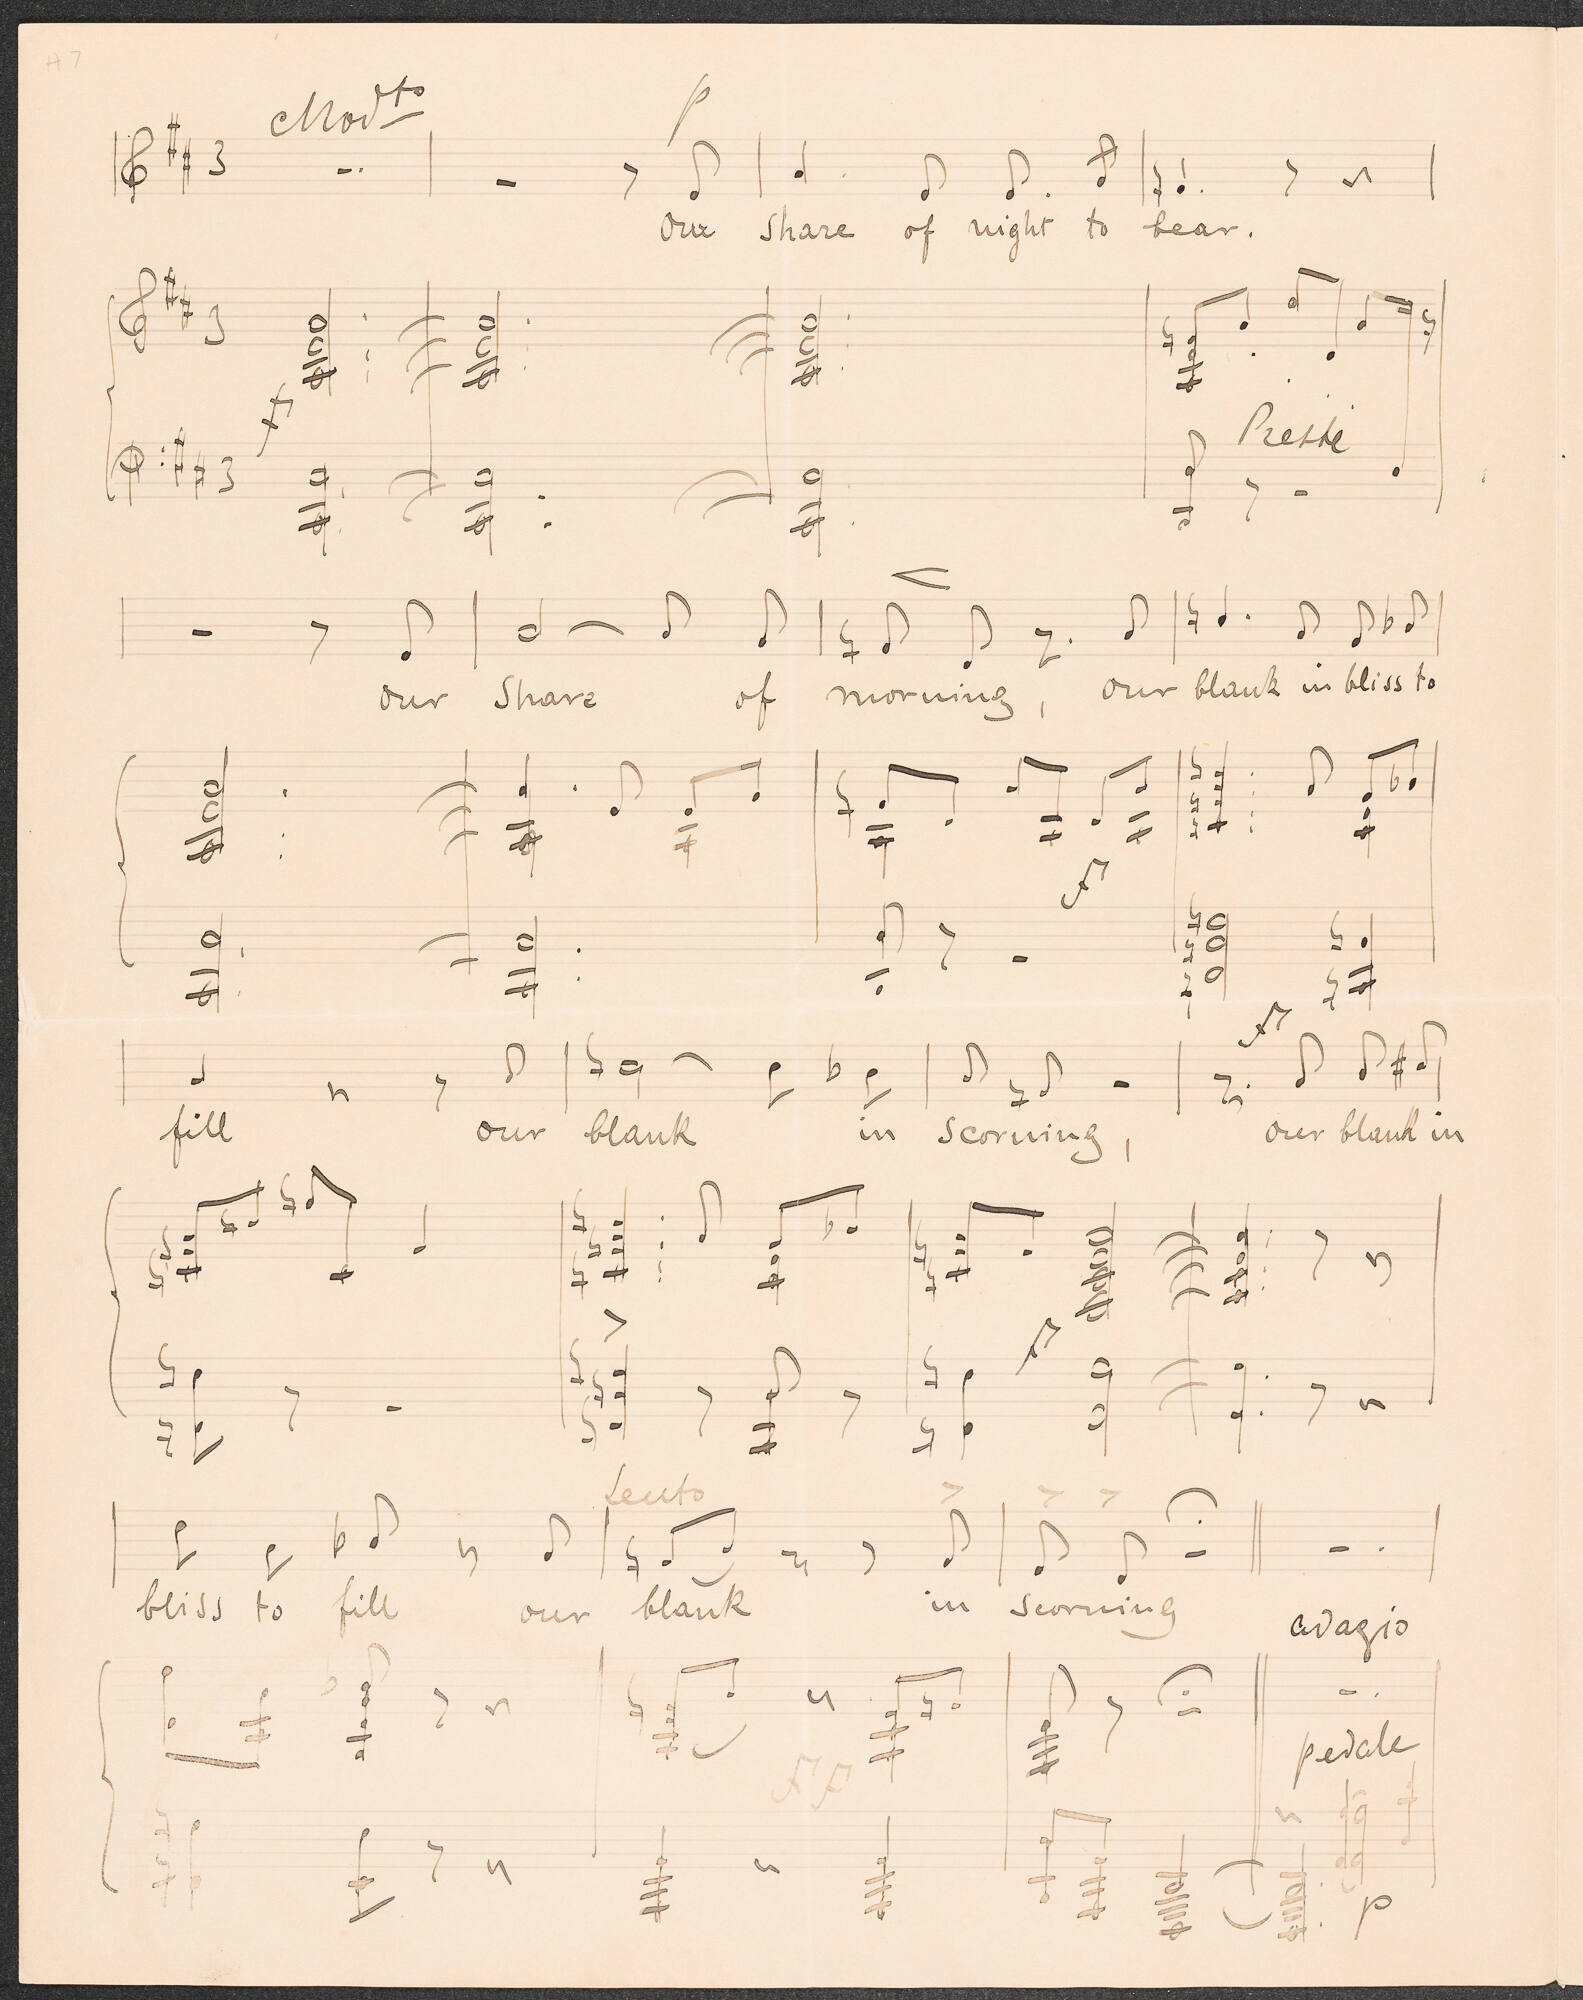 A7
Modto
p
3
our share of night to bear.
3
f
Presto
3
our share of morning, our blank in bliss to
f
f
fill our blank in scorning, our blank in
f
Lento
bliss to fill our blank in scorning
adagio
pedale
ff
p